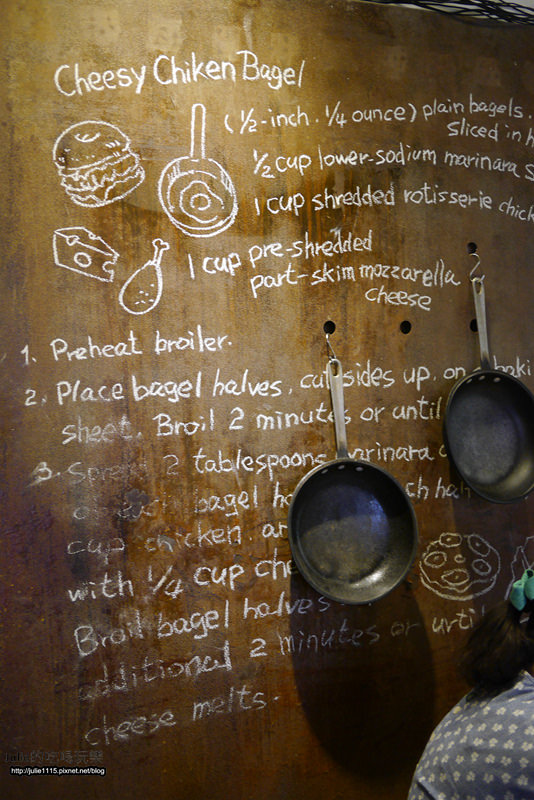 Cheesy Chiken Bagel
(½-inch. ¼ ounce) plain bagels.
sliced in
½ cup lower-sodium marinara
1 cup shredded rotisserie
1 cup pre-shredded
part-skim mozzarella
cheese
1. Preheat broiler.
2. Place bagel halves, cut sides up, on
sheet. Broil 2 minutes or until
3. Spread 2 tablespoons marinara
bagel
cup chicken
with ¼ cup
Broil bagel halves
additional 2 minutes or until
cheese melts.
Julie的吃喝玩樂
http://julie1115.pixnet.net/blog